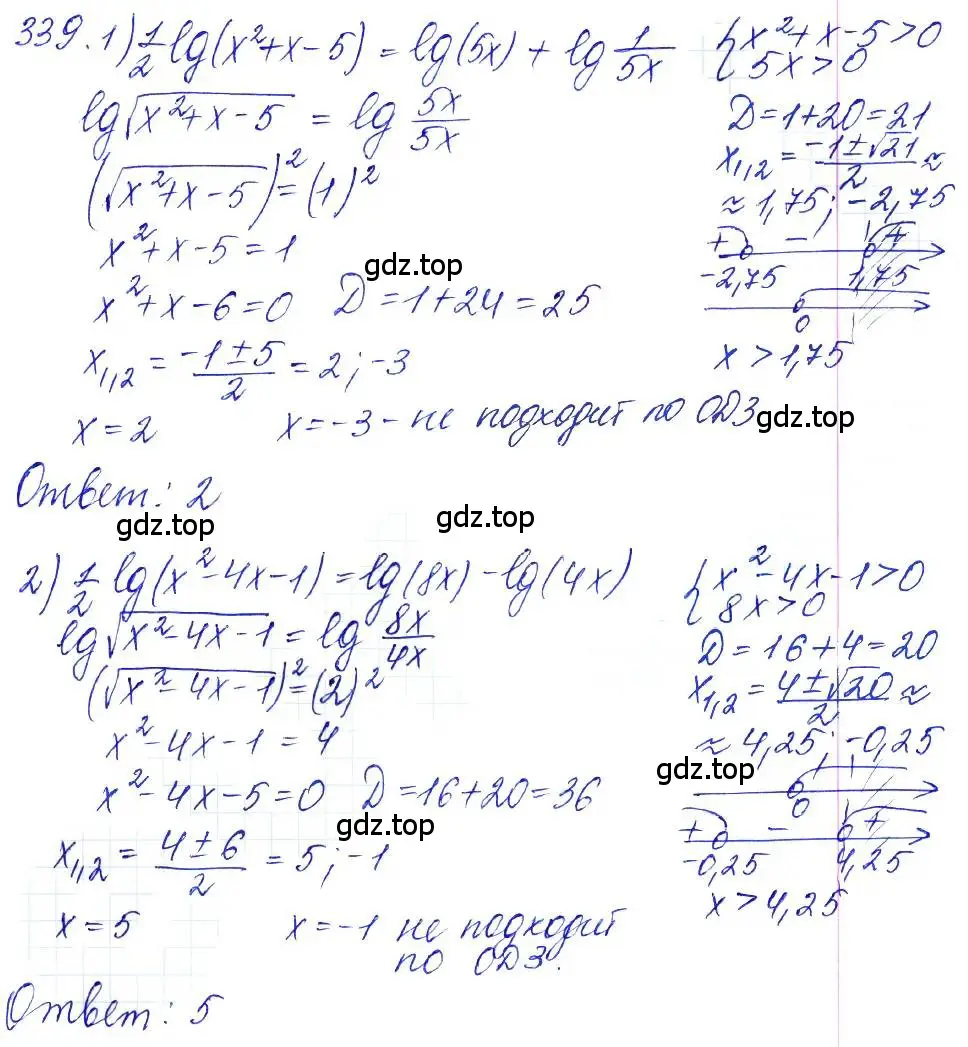 339. 1) 1/2 lg(x²+x-5) = lg(5x) + lg 1/5x { x²+x-5>0
5x>0
lg√(x²+x-5) = lg 5x/5x
D=1+20=21
(√(x²+x-5))² = (1)²
x₁,₂ = (-1±√21)/2 ≈
≈ 1,75; -2,75
x²+x-5=1
+ - +
-2,75 1,75
gdz.top
x²+x-6=0 D=1+24=25
0
x₁,₂ = (-1±5)/2 = 2; -3
x > 1,75
x=2 x=-3 - не подходит по ОДЗ
gdz.top
Ответ: 2
gdz.top gdz.top
2) 1/2 lg(x²-4x-1) = lg(8x) - lg(4x) { x²-4x-1>0
8x>0
lg√(x²-4x-1) = lg 8x/4x
D=16+4=20
(√(x²-4x-1))² = (2)²
x₁,₂ = (4±√20)/2 ≈
x²-4x-1=4
≈ 4,25; -0,25
gdz.top
x²-4x-5=0 D=16+20=36
0
gdz.top
+ - +
-0,25 4,25
x₁,₂ = (4±6)/2 = 5; -1
x > 4,25
x=5 x=-1 не подходит
по ОДЗ.
Ответ: 5